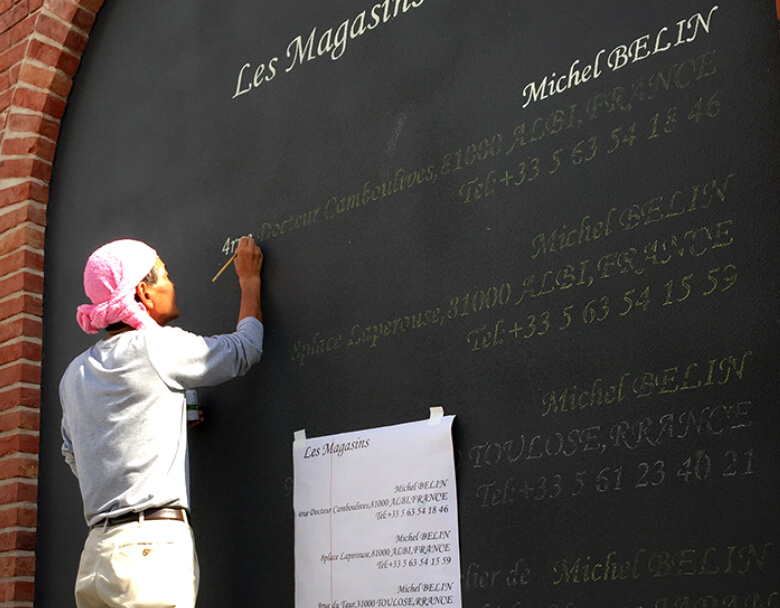 Les Magasins
Michel BELIN
4rue Docteur Camboulives,81000 ALBI,FRANCE
Tel:+33 5 63 54 18 46
Michel BELIN
8place Laperouse,81000 ALBI,FRANCE
Tel:+33 5 63 54 15 59
Michel BELIN
TOULOSE,RRANCE
Tel:+33 5 61 23 40 21
Michel BELIN
Les Magasins
Michel BELIN
4rue Docteur Camboulives,81000 ALBI,FRANCE
Tel:+33 5 63 54 18 46
Michel BELIN
8place Laperouse,81000 ALBI,FRANCE
Tel:+33 5 63 54 15 59
Michel BELIN
9rue du Taur,31000 TOULOSE,RRANCE